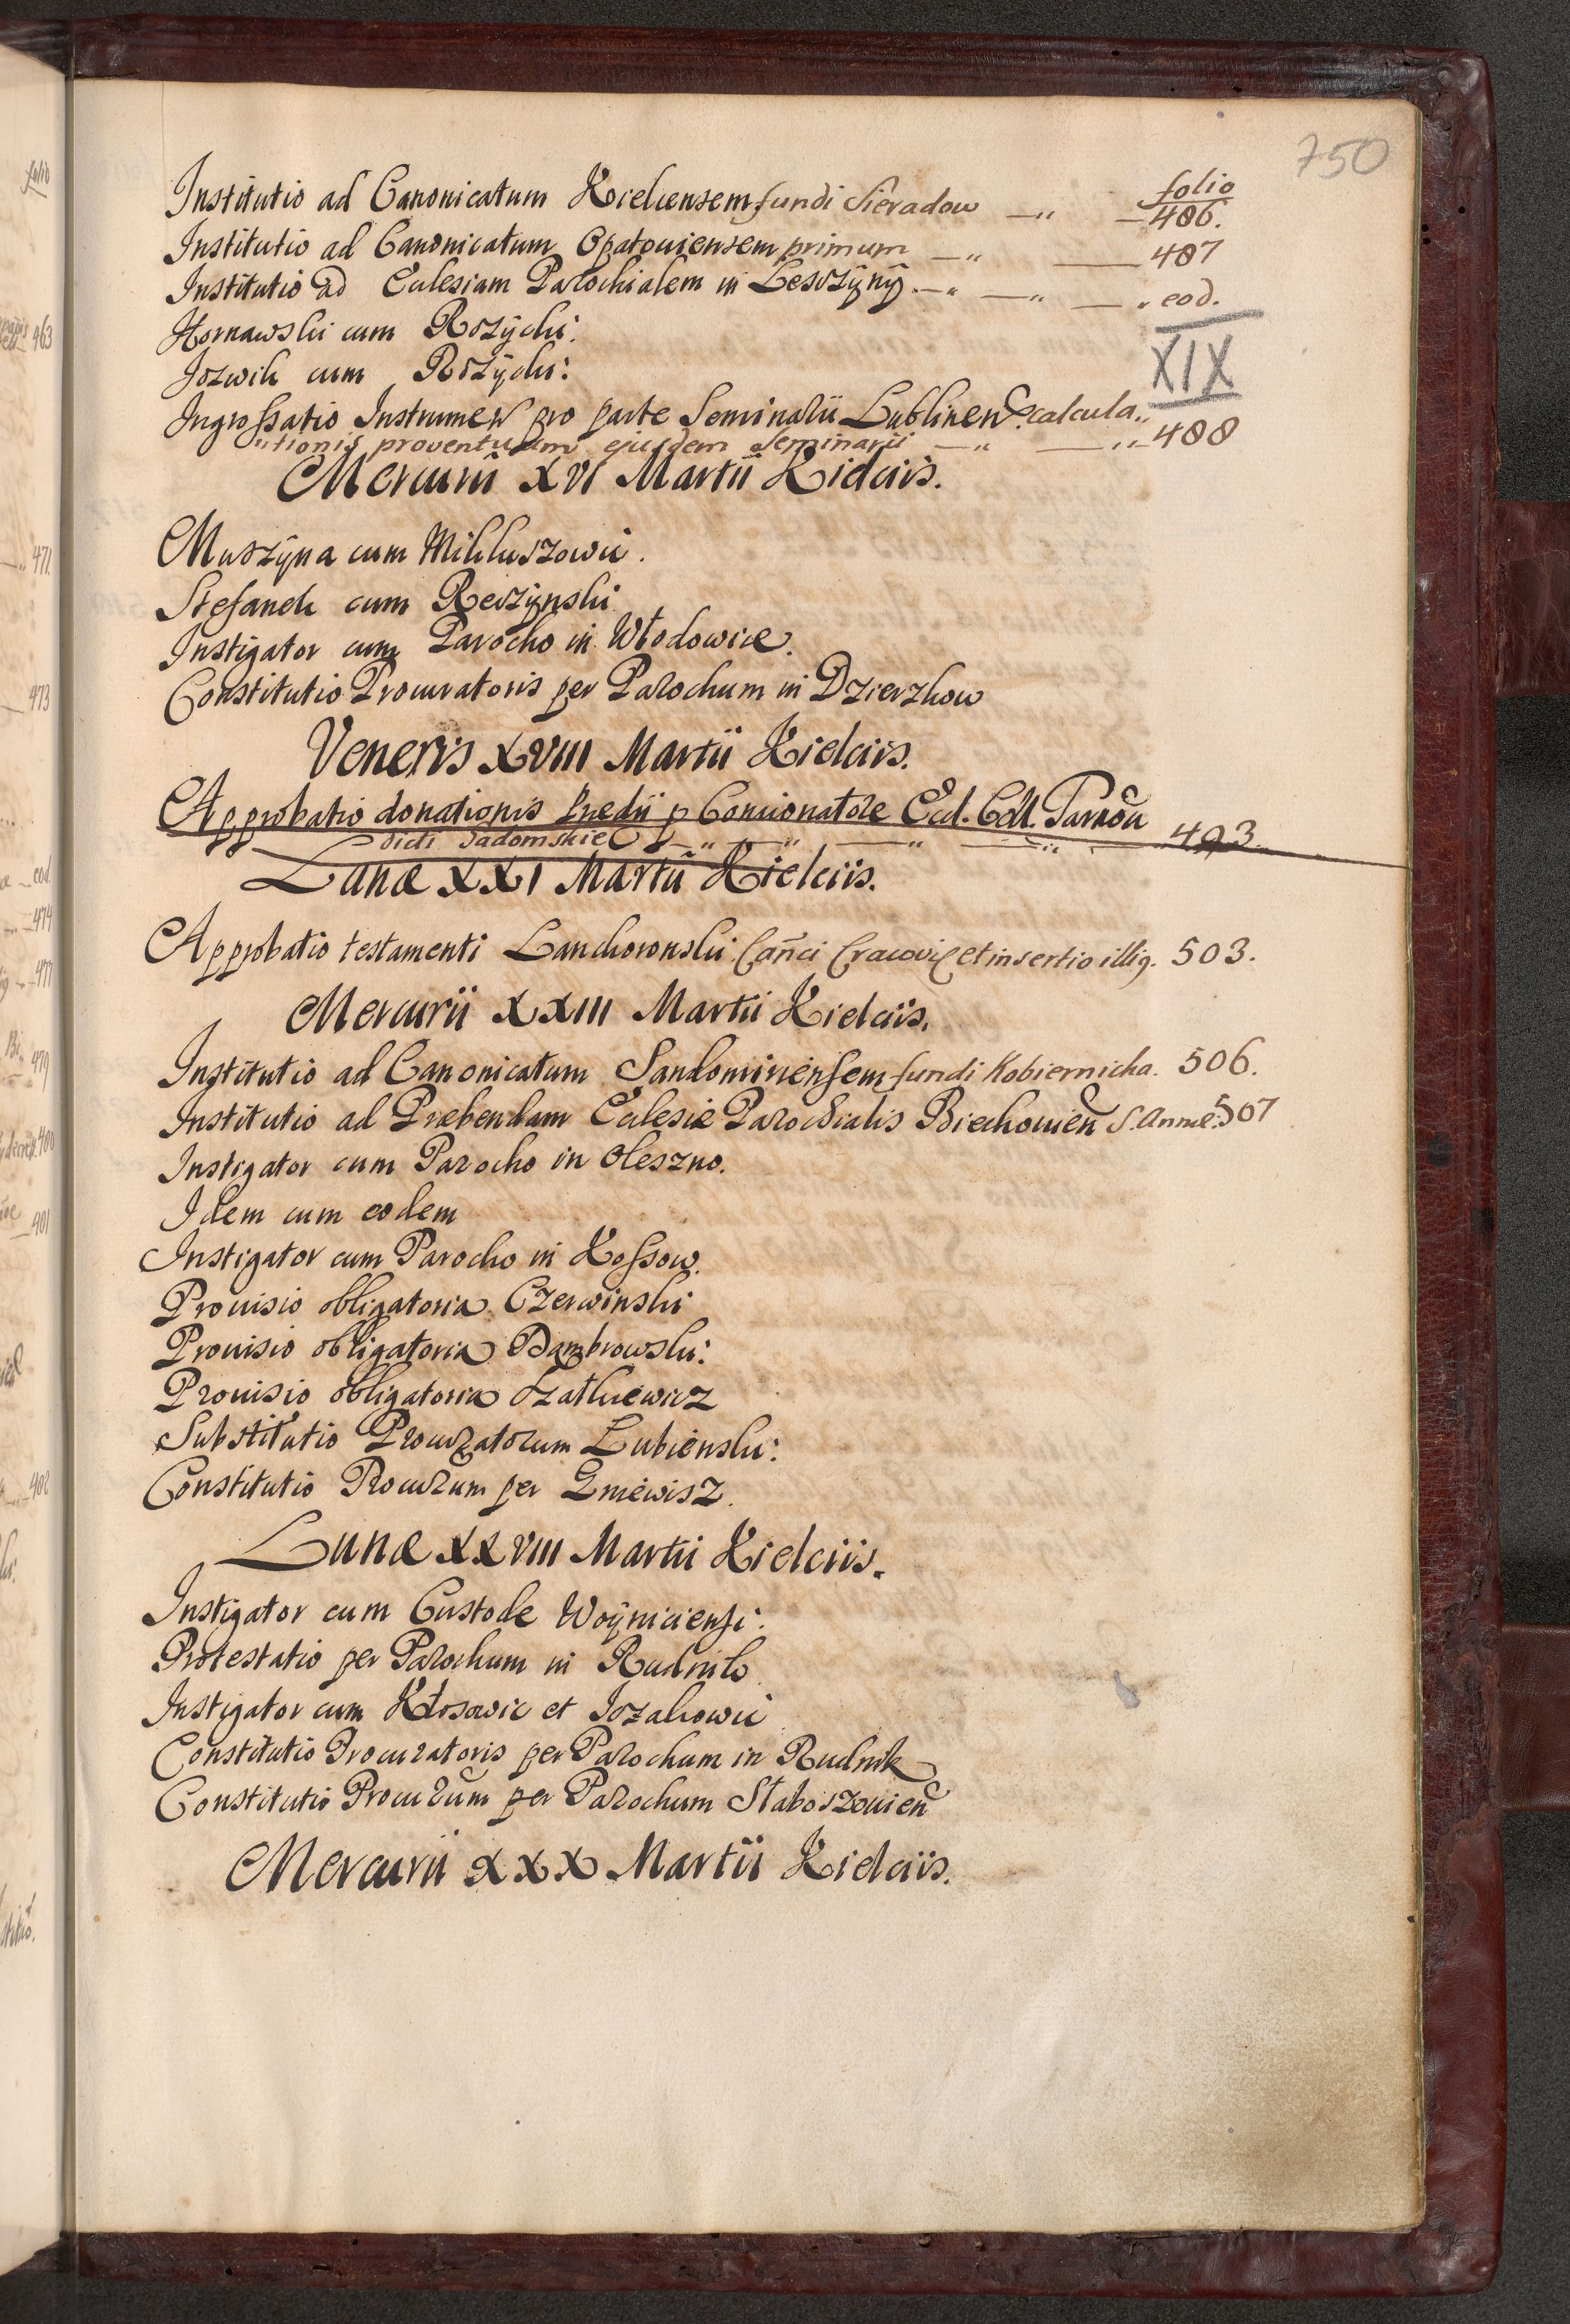 750
folio
Institutio ad Canonicatum Kielcensem fundi Sieradow — „ — 486.
Institutio ad Canonicatum Opatoviensem primum — „ — 487
Institutio ad Eclesiam Parochialem in Leszczyny. — „ — „ — „ eod.
Hornawski cum Rozycki:
XIX
Jozwik cum Rozycki:
Ingrossatio Instrumen pro parte Seminarii Lublinen calcula„
„tionis proventuum ejusdem Seminarii — „ — „ 488
Mercurii XVI Martii Kielciis.
Muszyna cum Mikluszowic.
Stefanek cum Reczynski
Instigator cum Parocho in Włodowice.
Constitutio Procuratoris per Parochum in Dzierzkow
Veneris XVIII Martii Kielciis.
Approbatio donationis Predii p Concionatore Eccl. Coll. Tarnou
dicti Sadomskie — „ — „ — „ — „ 493.
Lunæ XXI Martii Kielciis.
Approbatio testamenti Lanckoronski Cañci Cracovie et insertio illig. 503.
Mercurii XXIII Martii Kielciis.
Institutio ad Canonicatum Sandomiriensem fundi Kobiernicka. 506.
Institutio ad Præbendam Eclesiæ Parochialis Biechovien S. Annæ. 507
Instigator cum Parocho in Oleszno.
Idem cum eodem
Instigator cum Parocho in Kossow.
Prouisio obligatoria Czerwinski
Prouisio obligatoria Dambrowski:
Prouisio obligatoria Szatkiewicz
Substitutio Procuratorum Lubienski:
Constitutio Procurum per Gniewisz.
Lunæ XXVIII Martii Kielciis.
Instigator cum Custode Woyniciensi:
Protestatio per Parochum in Rudnik
Instigator cum Kłosowic et Jozakowic
Constitutio Procuratoris per Parochum in Rudnik
Constitutio Procurum per Parochum Słaboszouien
Mercurii XXX Martii Kielciis.